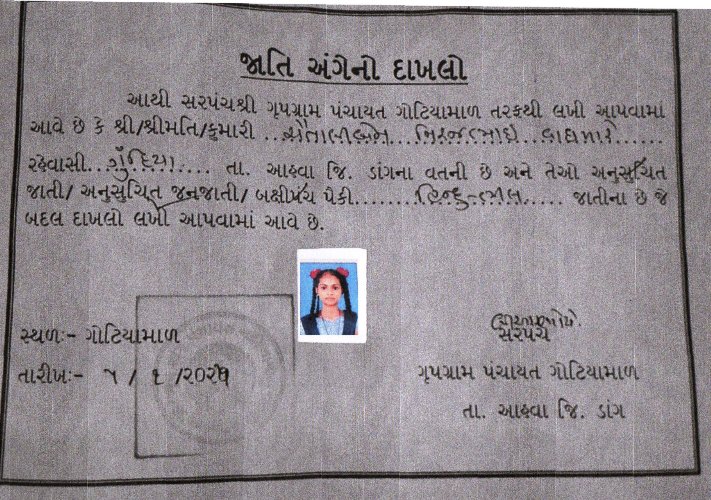 જાતિ અંગેનો દાખલો
આથી સરપંચશ્રી ગૃપગ્રામ પંચાયત ગોટિયામાળ તરફથી લખી આપવામાં
આવે છે કે શ્રી/શ્રીમતિ/કુમારી ..
રહેવાસી... તા. આહવા જિ. ડાંગના વતની છે અને તેઓ અનુસુચિત
જાતી/ અનુસુચિત જનજાતી/ બક્ષીપંચ પૈકી........હિન્દુ-ભીલ..... જાતીના છે જે
બદલ દાખલો લખી આપવામાં આવે છે.
સ્થળઃ- ગોટિયામાળ
સરપંચ
તારીખઃ- ૫ / ૬ /૨૦૨૧
ગૃપગ્રામ પંચાયત ગોટિયામાળ
તા. આહવા જિ. ડાંગ